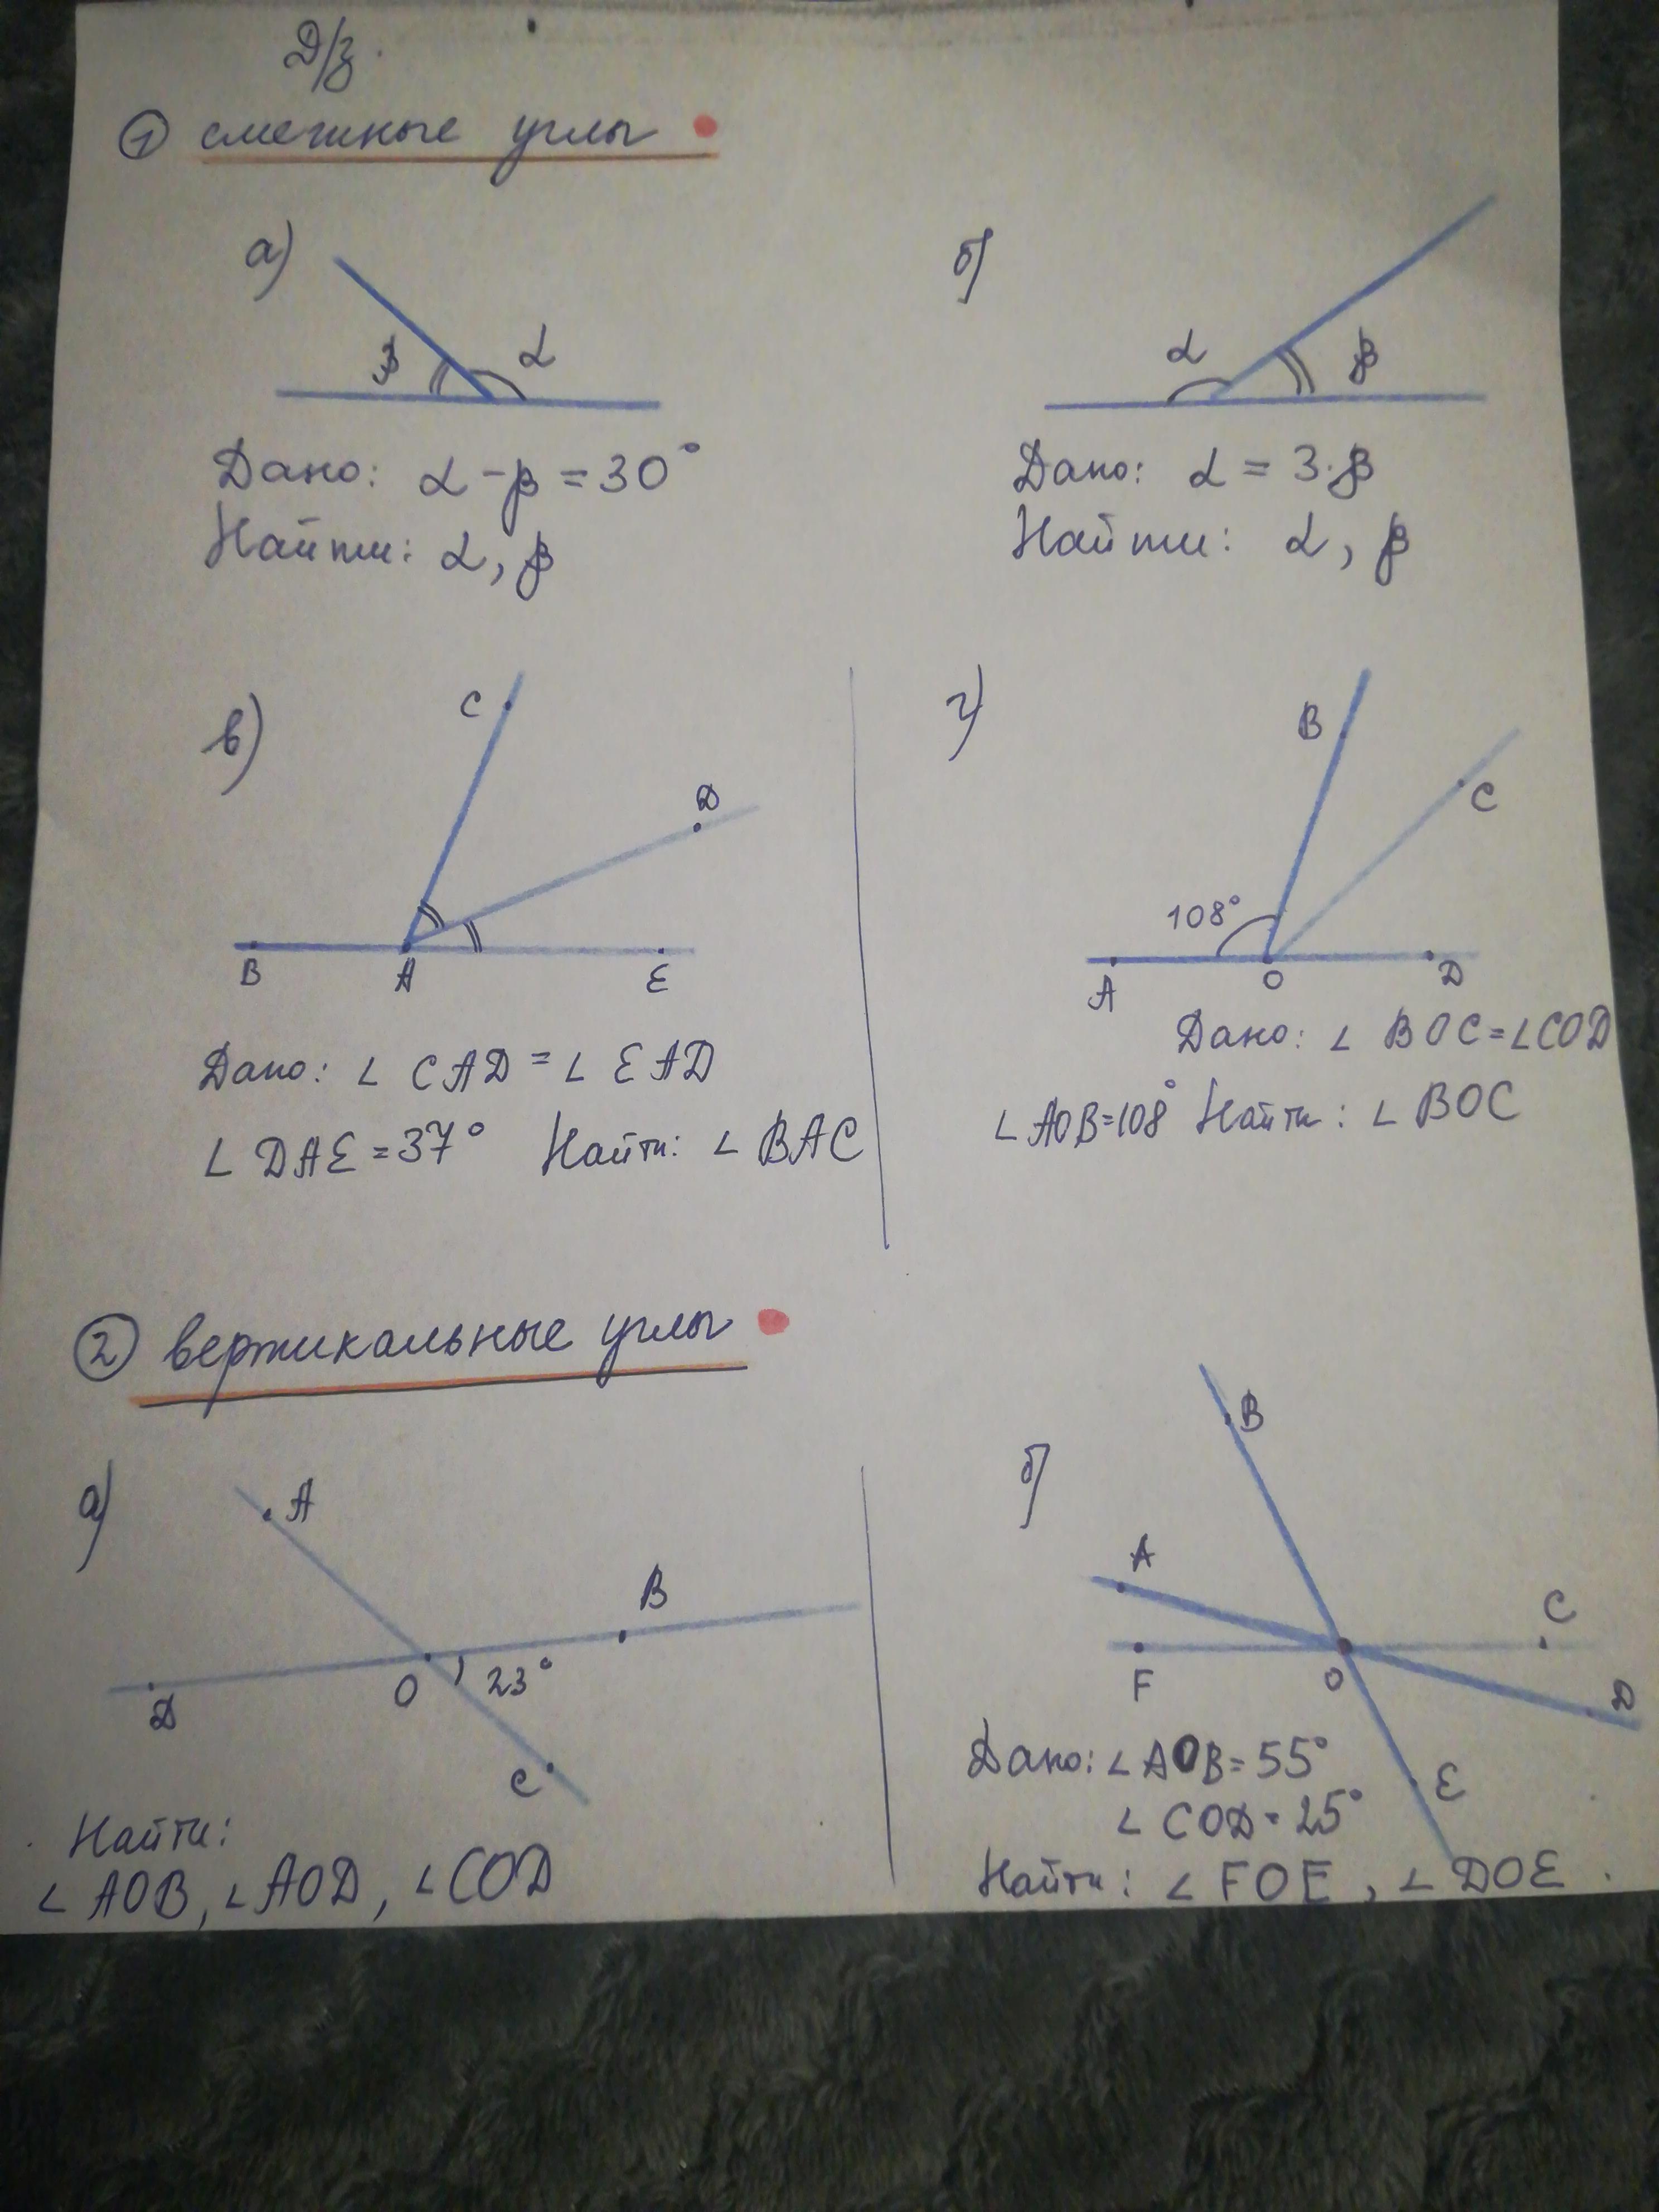 Д/з.
① смежные углы
а)
β α
Дано: α - β = 30°
Найти: α, β
б)
α β
Дано: α = 3·β
Найти: α, β
в)
C
D
B A E
Дано: ∠ CAD = ∠ EAD
∠ DAE = 37° Найти: ∠ BAC
г)
B
C
108°
A O D
Дано: ∠ BOC = ∠COD
∠ AOB=108° Найти: ∠ BOC
② вертикальные углы
а)
A
B
O 23°
D
C
Найти:
∠ AOB, ∠ AOD, ∠ COD
б)
B
A
C
F O D
E
Дано: ∠ AOB = 55°
∠ COD = 25°
Найти: ∠ FOE, ∠ DOE.